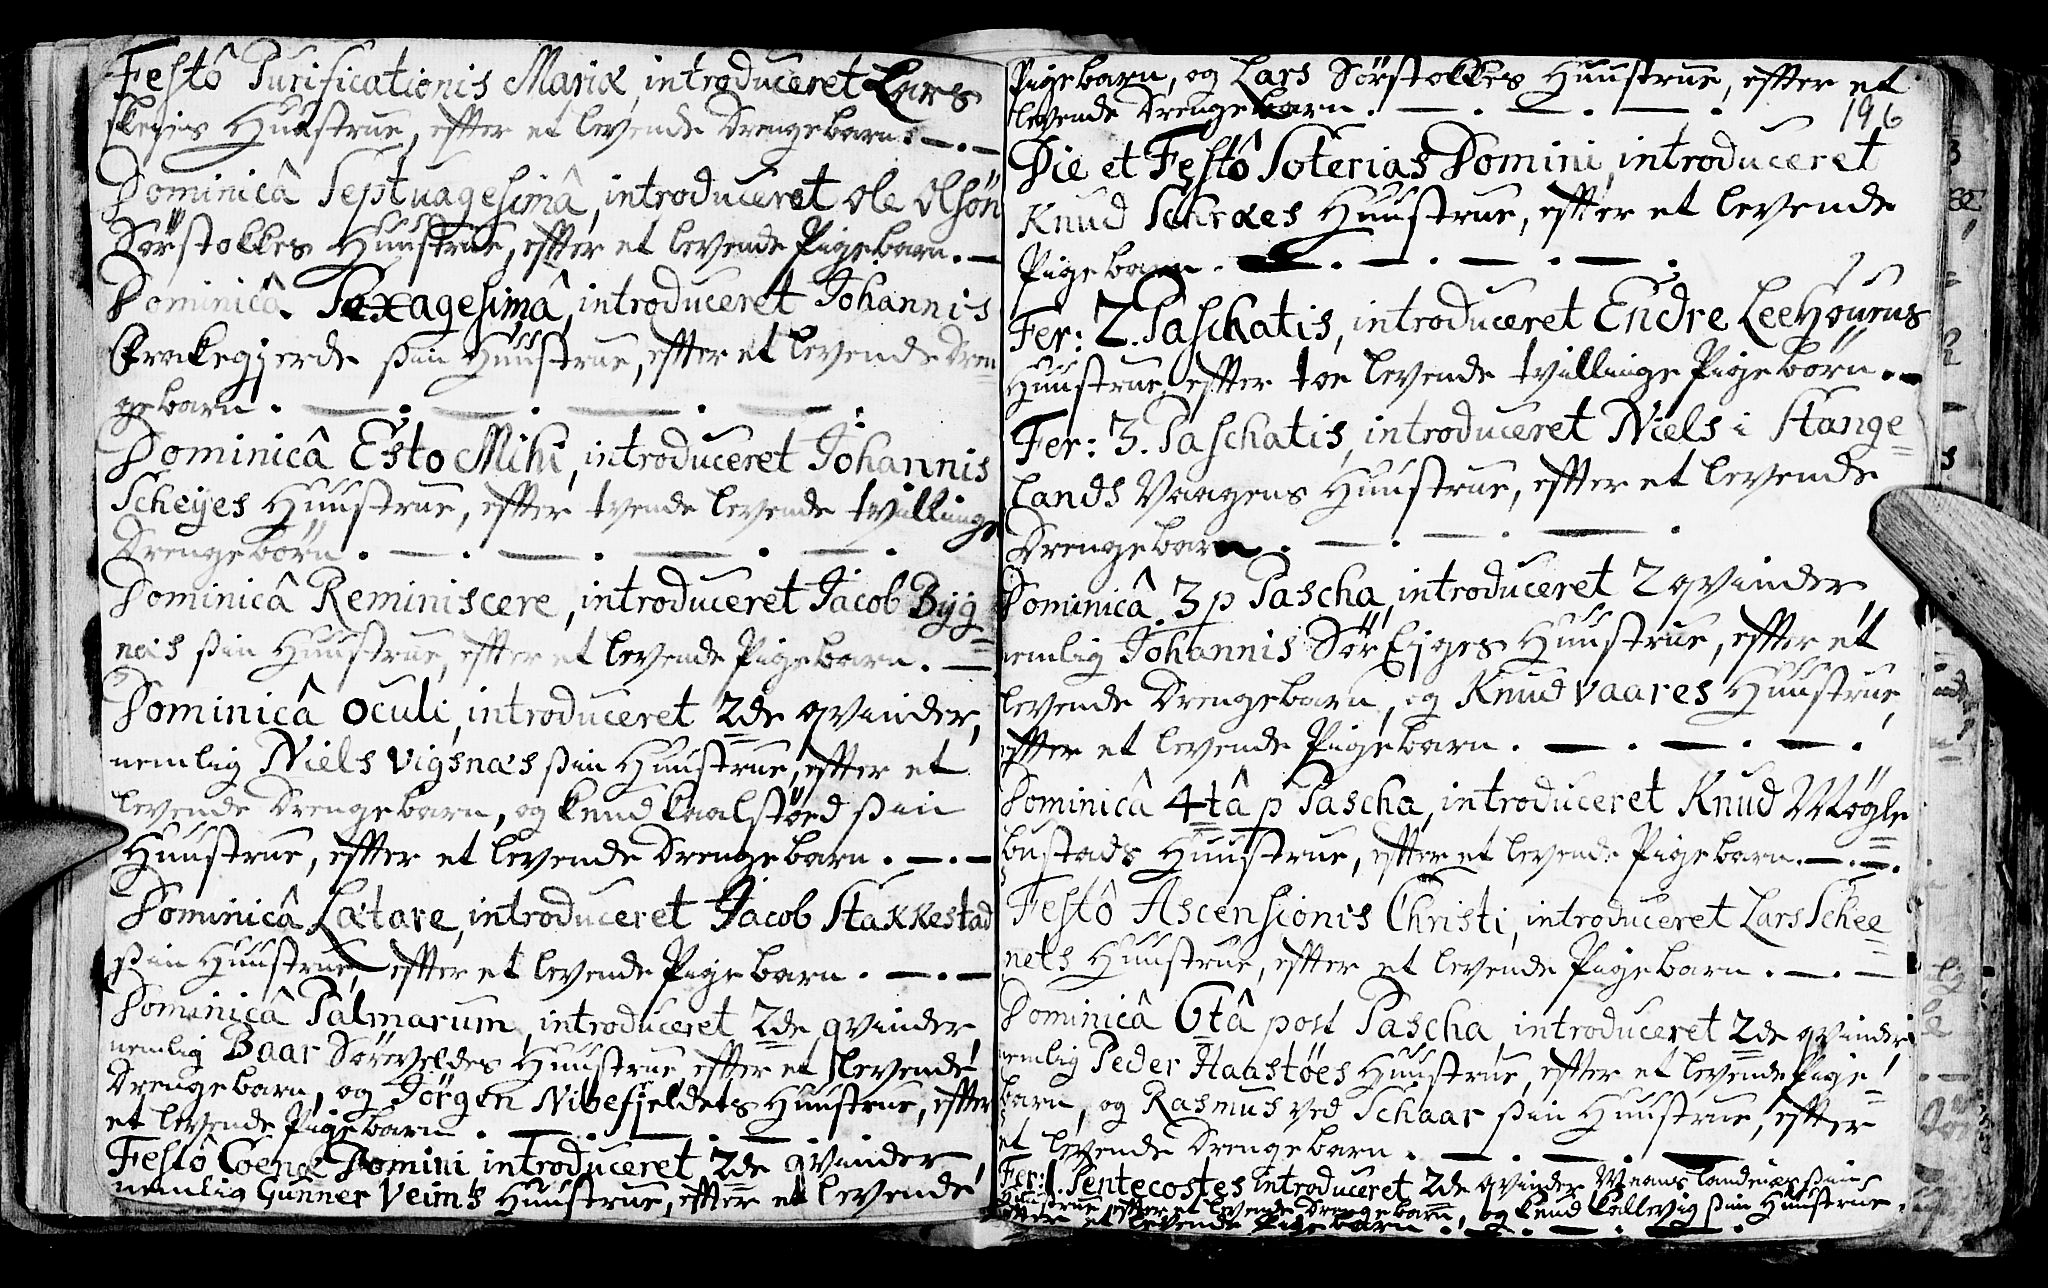 Festô Purificationis Mariæ, introduceret Lars
Huustrue, effter et levende Drengebarn. — . —
Dominicâ Septuagesimâ, introduceret Ole Olsön
Sörstokkes Huustrue, effter et levende Pigebarn. —
Dominicâ Sexagesimâ, introduceret Johannis
Krakegjerde sin Huustrue, effter et levende Dren=
gebarn. — . — . — . — .
Dominicâ Esto Mihi, introduceret Johannis
Scheyes Huustrue, effter tvende levende tvillinge
Drengebørn. — . — . — . — .
Dominicâ Reminiscere, introduceret Jacob Byg=
nes sin Huustrue, effter et levende Pigebarn. —
Dominicâ Oculi, introduceret 2de qvinder,
nemlig Niels Vigsnæs sin Huustrue, effter et
levende Drengebarn, og Knud Kaalstöed sin
Huustrue, effter et levende Drengebarn. — . —
Dominicâ Lætare, introduceret Jacob Stakkestad
sin Huustrue, effter et levende Pigebarn. — . —
Dominicâ Palmarum, introduceret 2de qvinder,
nemlig Baar Sörveldes Huustrue effter et levende
Drengebarn, og Jörgen Nibefjeldets Huustrue, effter
et levende Pigebarn. — . — . —
Festô Coenæ Domini introduceret 2de qvinder,
nemlig Gunner Veim's Huustrue, effter et levende
Pigebarn, og Lars Sörstokkes Huustrue, effter et
levende Drengebarn. — . — . — .
196
Die et Festô Soterias Domini, introduceret
Knud Schræs Huustrue, effter et levende
Pigebarn. — . — . — . — .
Fer: 2. Paschatis, introduceret Endre Leehouens
Huustrue effter toe levende tvillinge Pigebörn. —
Fer: 3. Paschatis, introduceret Niels i Stange=
lands Vaagens Huustrue, effter et levende
Drengebarn. — . — . — .
Dominicâ 3 p Pascha, introduceret 2 qvinder
nemlig Johannis Sör Ejges Huustrue, effter et
levende Drengebarn, og Knud Vaares Huustrue,
effter et levende Pigebarn. — . — . — .
Dominicâ 4tâ p Pascha, introduceret Knud Mögle=
bustads Huustrue, effter et levende Pigebarn. — . — .
Festô Ascensionis Christi, introduceret Lars Schee=
nets Huustrue, effter et levende Pigebarn. — . —
Dominicâ 6tâ post Pascha, introduceret 2de qvinder
nemlig Peder Haastöes Huustrue, effter et levende Pige=
barn, og Rasmus ved Schaar sin Huustrue, effter
et levende Drengebarn. — . — . —
Fer: 1. Pentecostes introduceret 2de qvinder sin
Huustrue effter et levende Drengebarn, og Knud Kallevig sin Huustrue,
effter et levende Pigebarn. — . — . — .